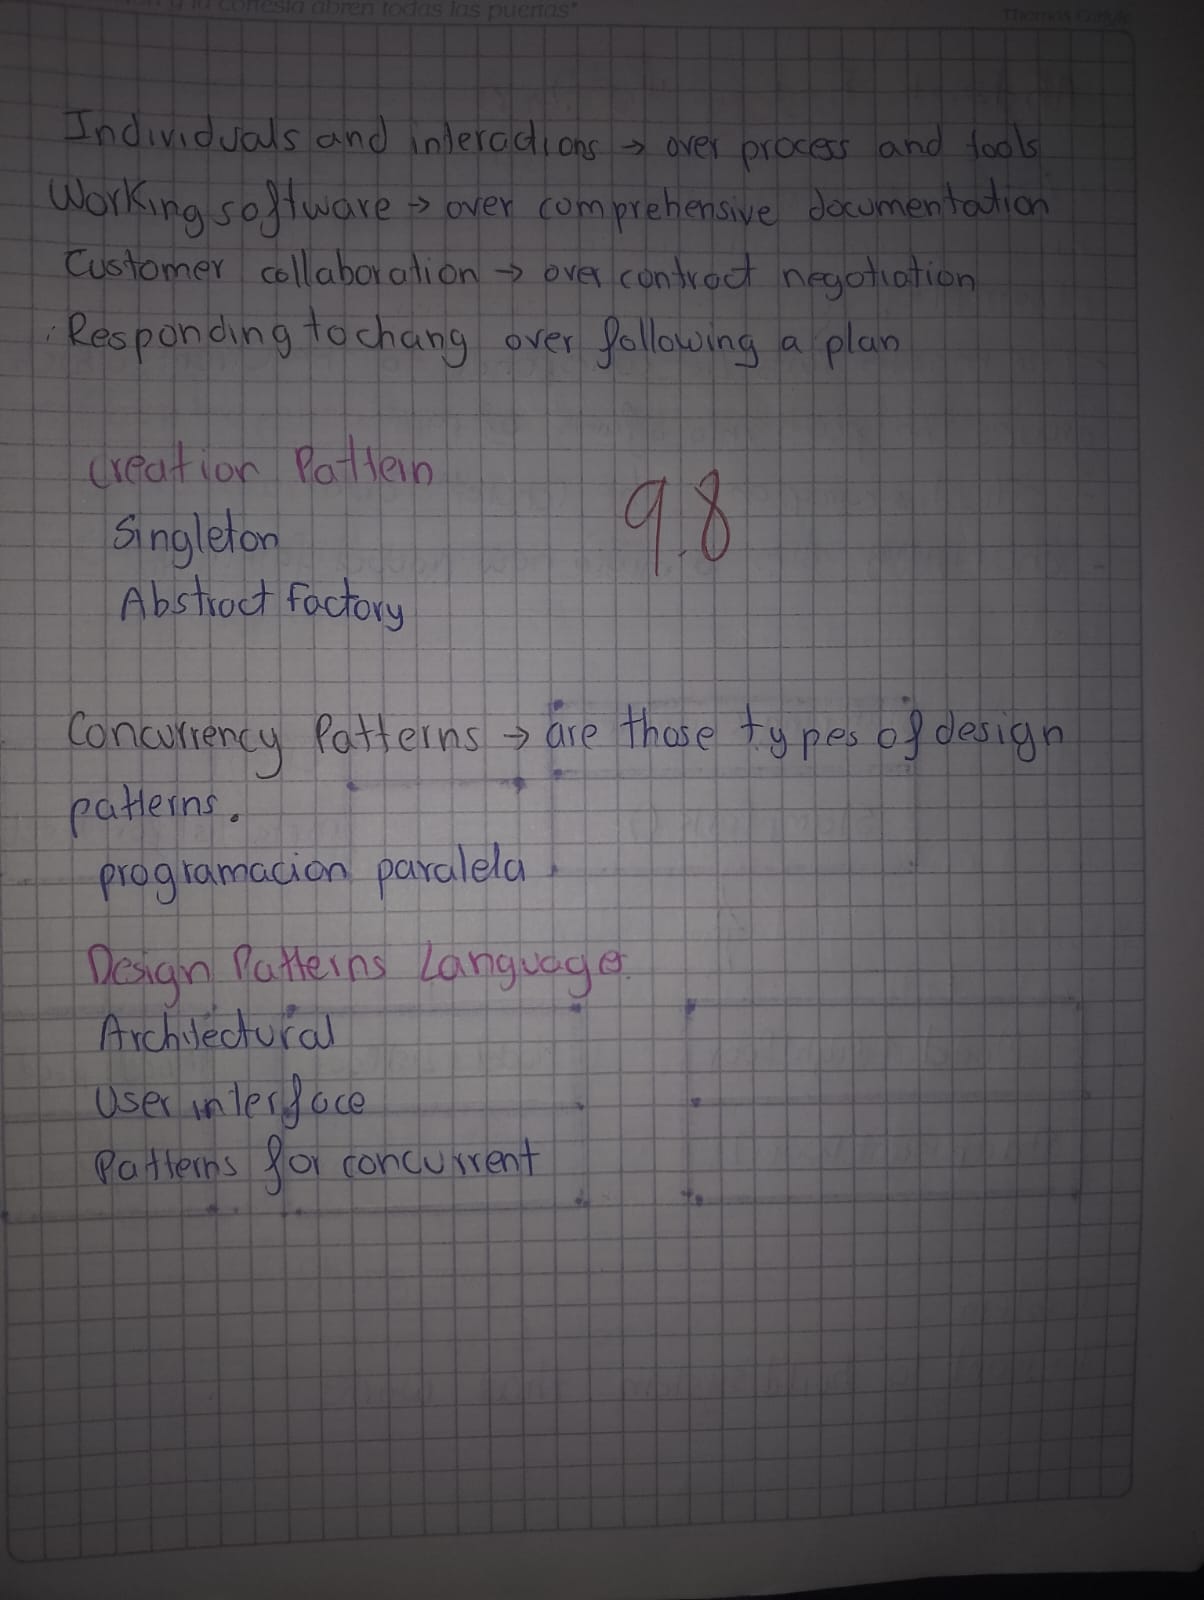 la cortesía abren todas las puertas"
Thomas Carlyle
Individuals and interactions → over process and tools
Working software → over comprehensive documentation
Customer collaboration → over contract negotiation
Responding to chang over following a plan
Creation Pattern
Singleton
9.8
Abstract factory
Concurrency Patterns → are those types of design
patterns.
programacion paralela
Design Patterns Language
Architectural
User interface
Patterns for concurrent